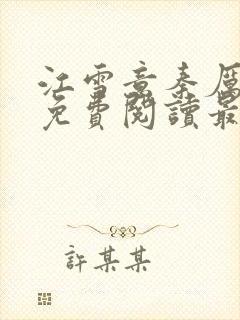 江雪意秦厲
免費閱讀最
許某某